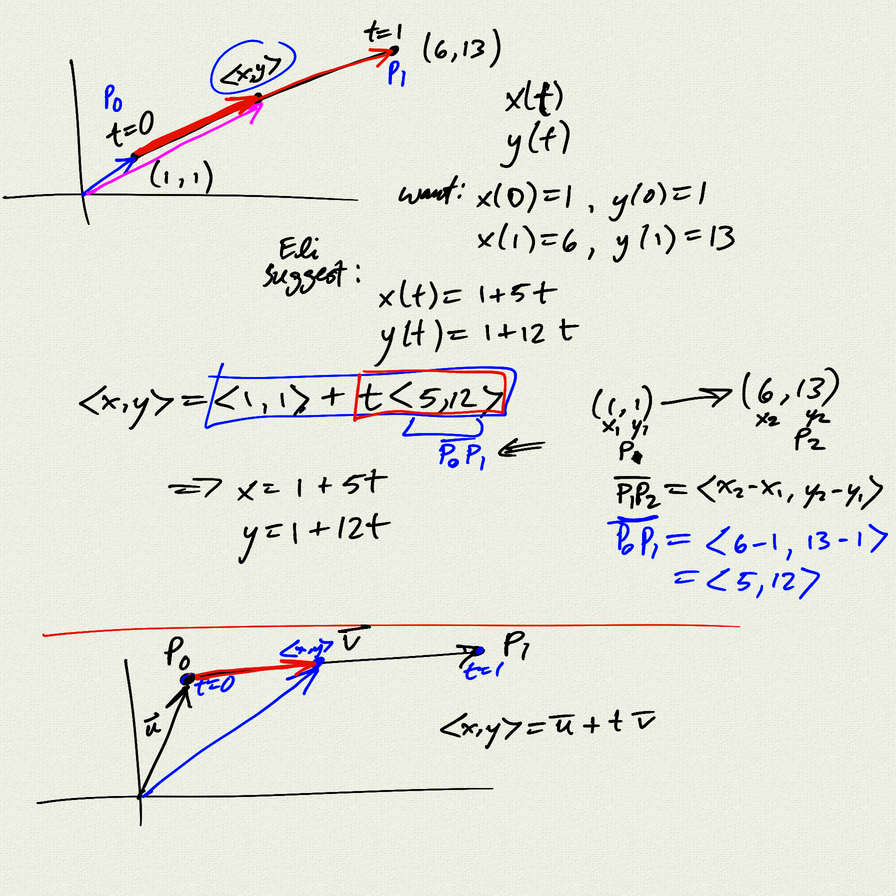 t=1 (6,13)
P₁
<x,y>
P₀
t=0
(1,1)
x(t)
y(t)
want: x(0)=1, y(0)=1
x(1)=6, y(1)=13
Eli
suggest:
x(t)= 1+5t
y(t)= 1+12 t
<x,y> = <1,1> + t<5,12>
P₀P₁
(1,1) → (6,13)
x₁ y₁ x₂ y₂
P P₂
⇒ x= 1 + 5t
y= 1 + 12t
P₁P₂ = <x₂-x₁, y₂-y₁>
P₀P₁ = <6-1, 13-1>
= <5,12>
P₀ <x,y> v P₁
t=0 t=1
u
<x,y> = u + t v